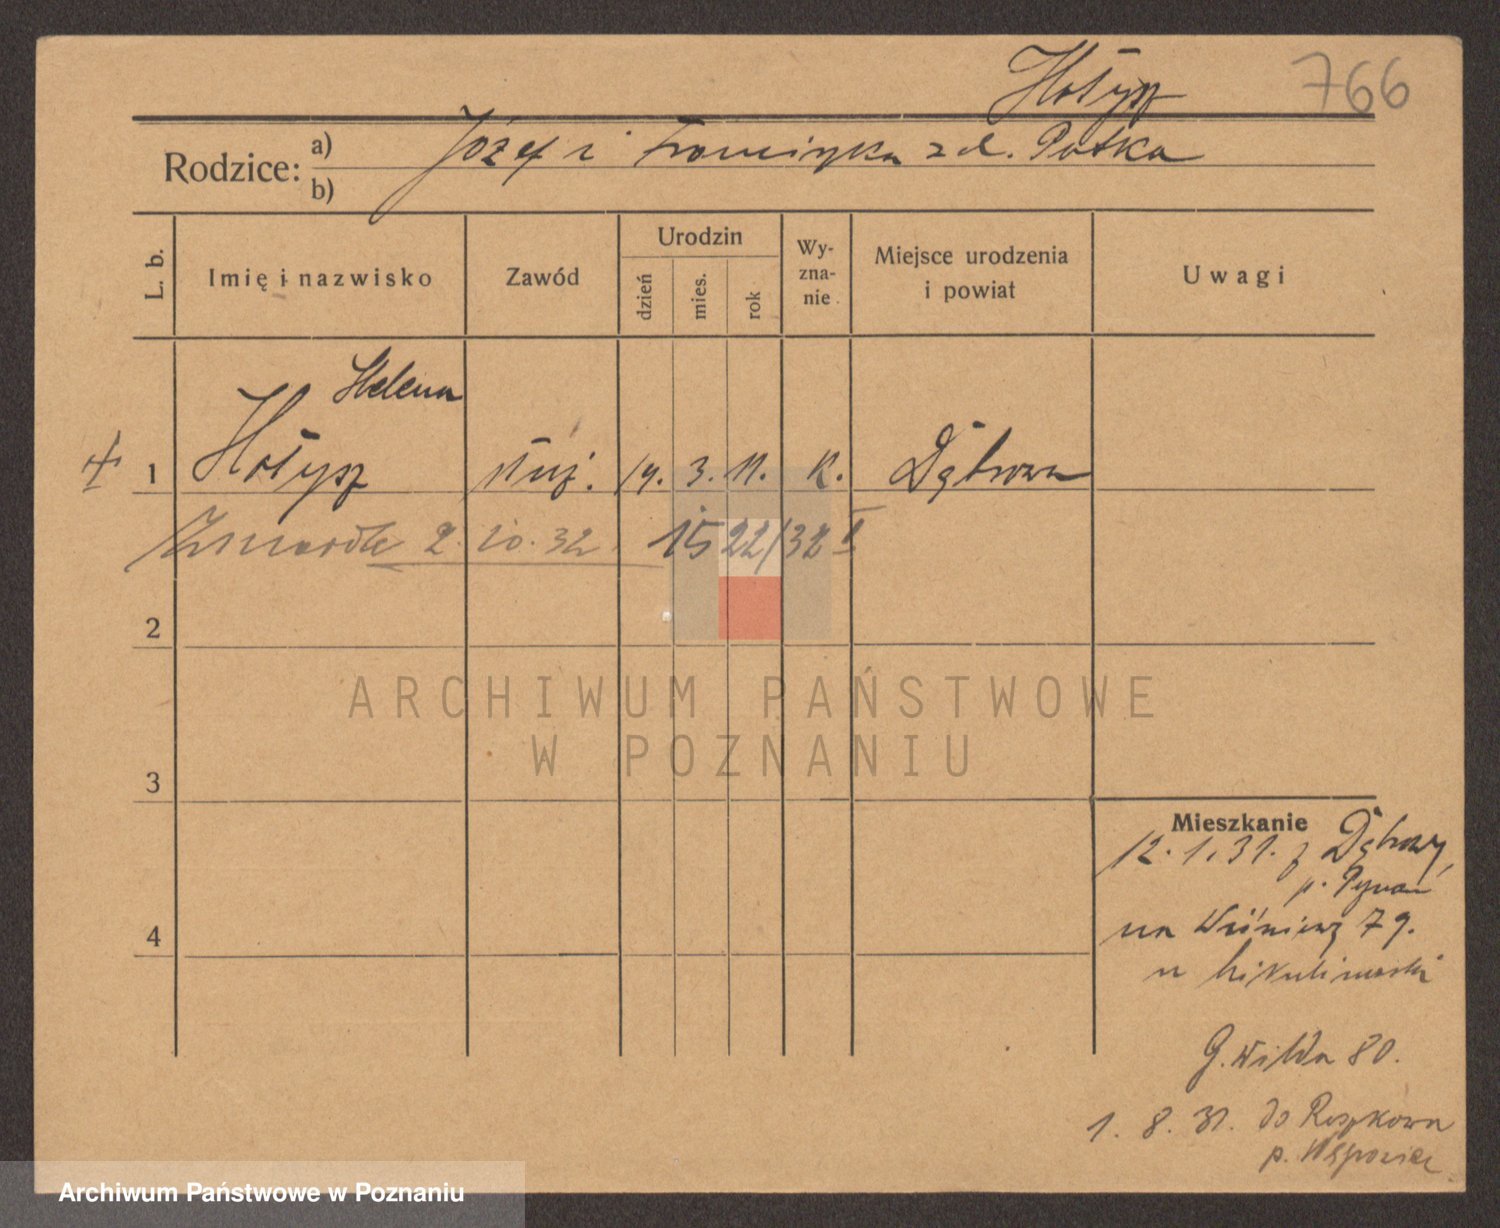 Hołysz 766
Rodzice: a) Józef i Franciszka z d. Patka
b)
L. b. Imię i nazwisko Zawód Urodzin dzień mies. rok Wyznanie Miejsce urodzenia i powiat Uwagi
Helena
1 Hołysz służ. 14. 3. 11. K. Dąbrowa
Zmarła 2. 10. 32 1522/32 I
2
ARCHIWUM PAŃSTWOWE
W POZNANIU
3
Mieszkanie
12. 1. 31. z Dąbrowy,
p. Poznań
4
na Wiśniową 79.
u
G. Wilda 80.
1. 8. 31. do Roszkowa
p. Wągrowiec
Archiwum Państwowe w Poznaniu